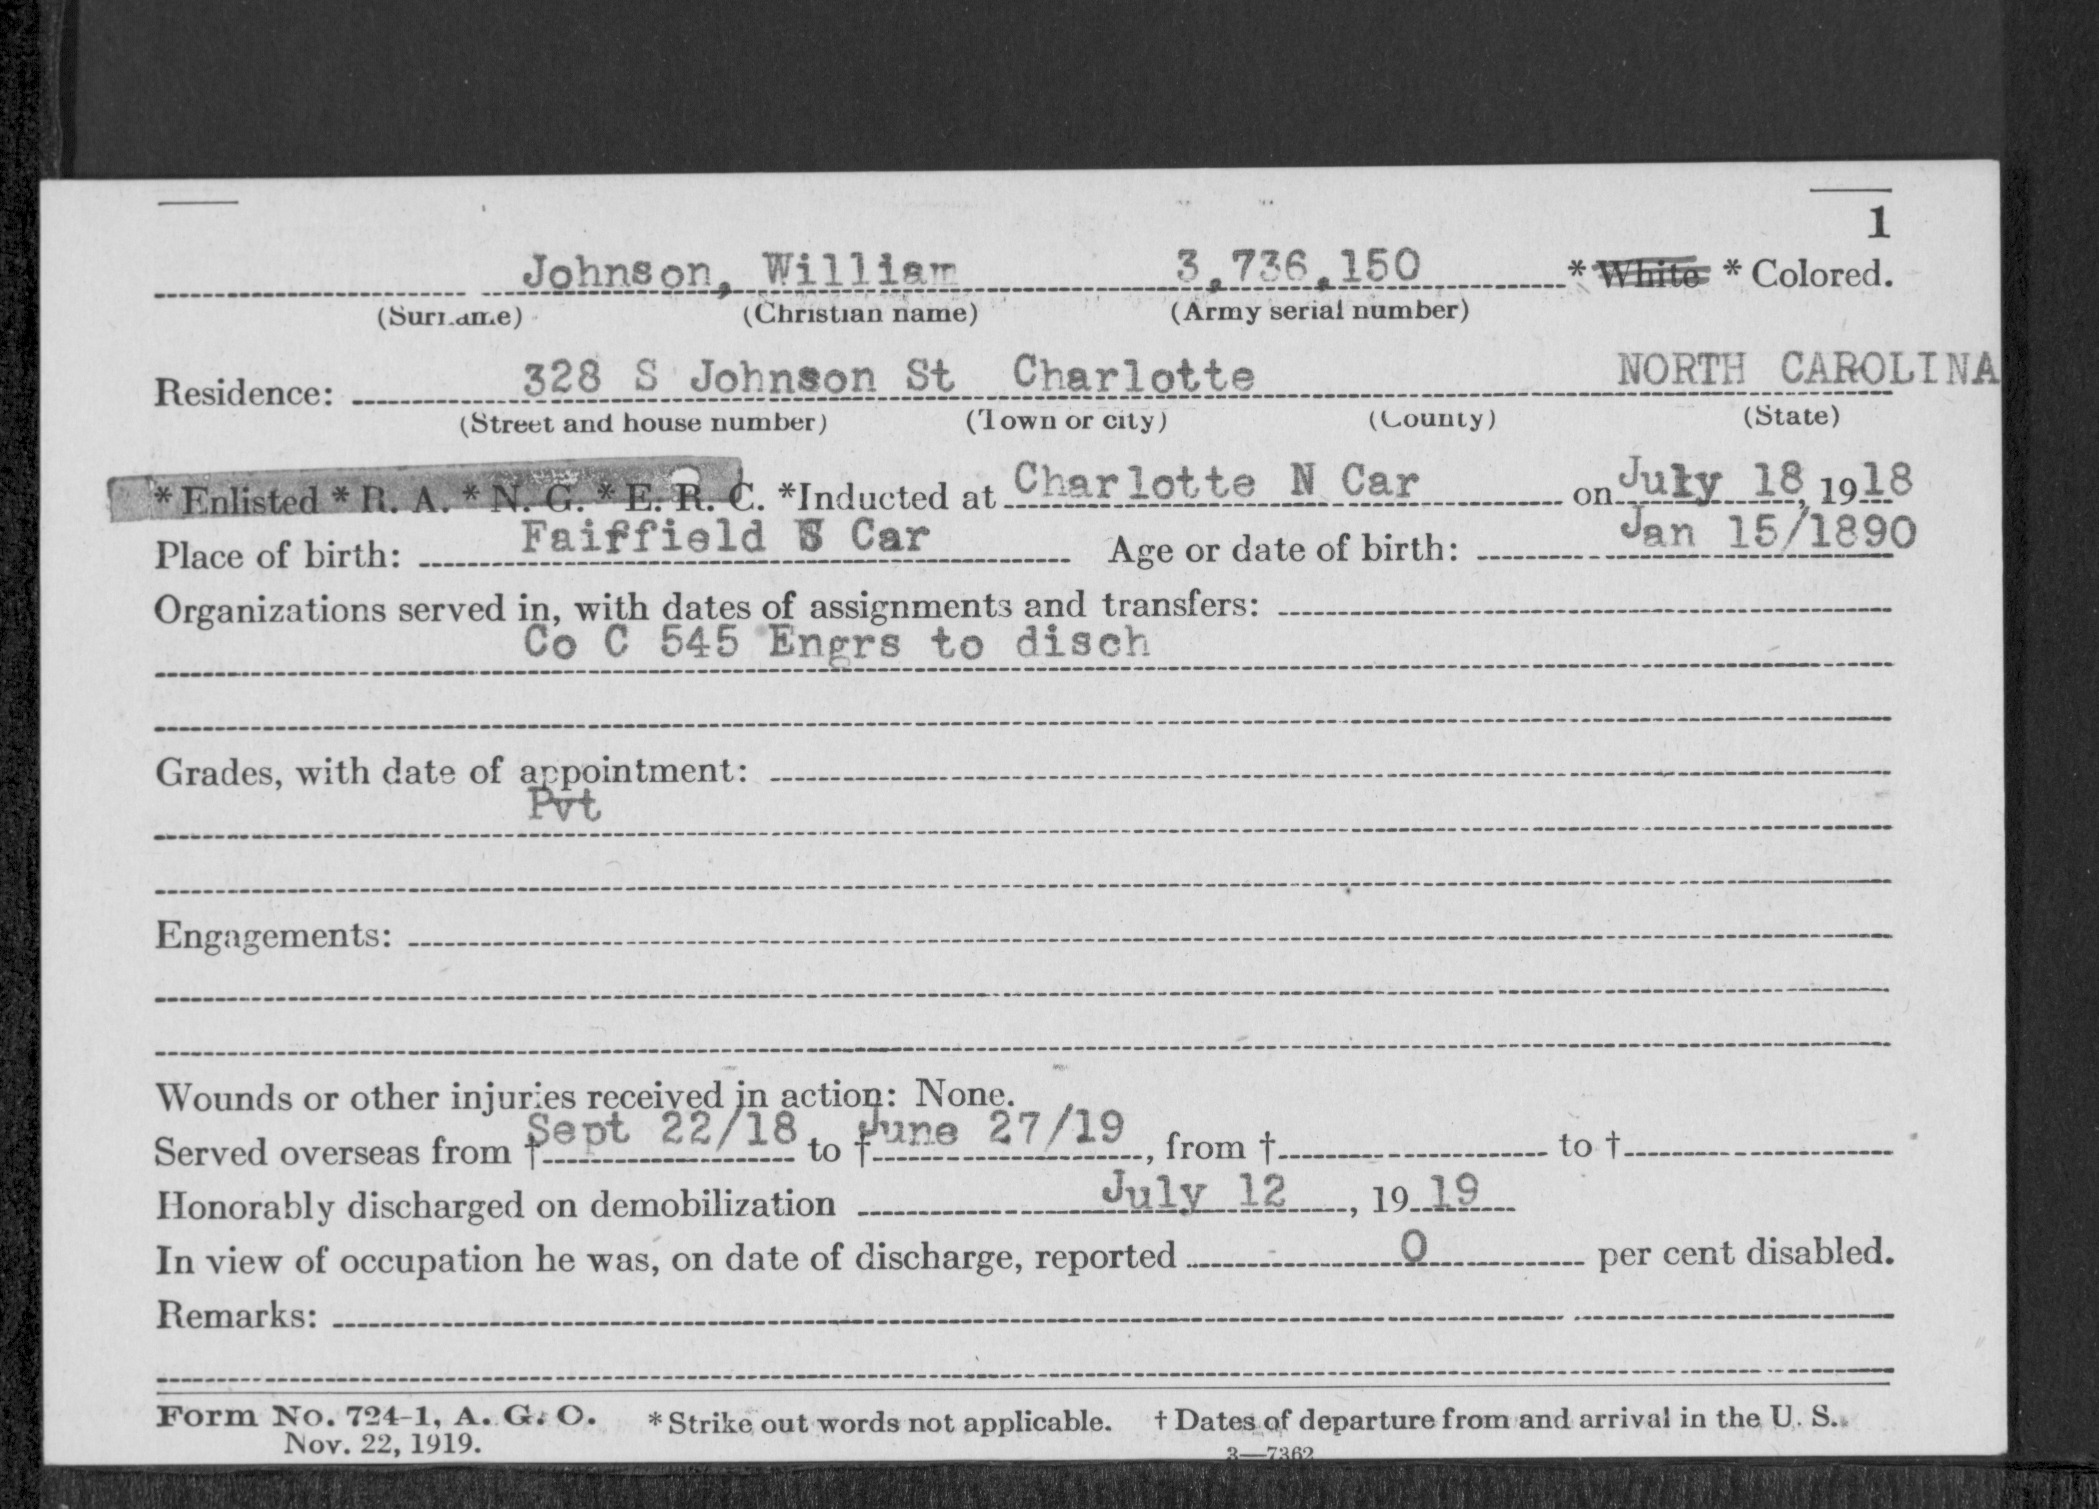 1
Johnson, William 3,736,150 * White * Colored.
(Surname) (Christian name) (Army serial number)
Residence: 328 S Johnson St Charlotte NORTH CAROLINA
(Street and house number) (Town or city) (County) (State)
* Enlisted * R. A. * N. G. * E. R. C. *Inducted at Charlotte N Car on July 18, 1918
Place of birth: Faiffield S Car Age or date of birth: Jan 15/1890
Organizations served in, with dates of assignments and transfers:
Co C 545 Engrs to disch
Grades, with date of appointment:
Pvt
Engagements:
Wounds or other injuries received in action: None.
Served overseas from † Sept 22/18 to † June 27/19, from † to †
Honorably discharged on demobilization July 12, 1919
In view of occupation he was, on date of discharge, reported 0 per cent disabled.
Remarks:
Form No. 724-1, A. G. O. * Strike out words not applicable. † Dates of departure from and arrival in the U. S.
Nov. 22, 1919. 3—7362